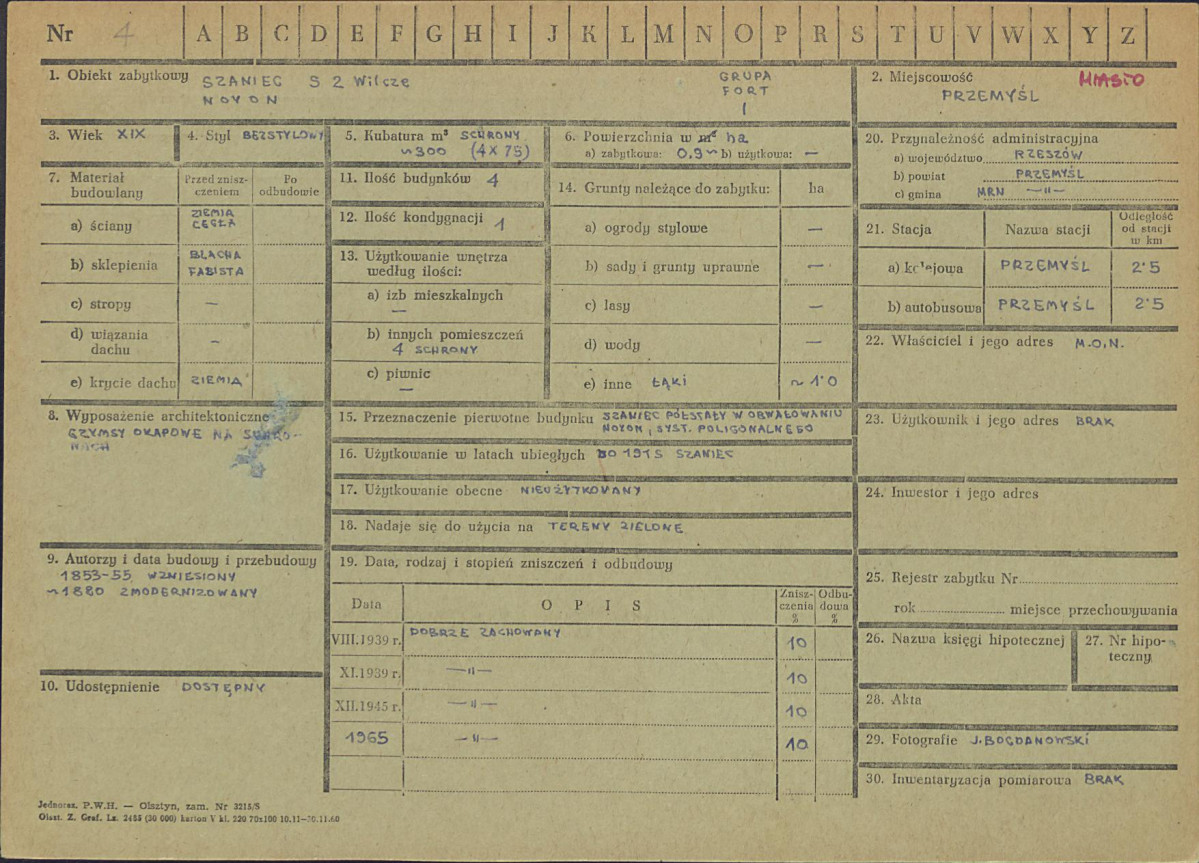 Nr 4 A B C D E F G H I J K L M N O P R S T U V W X Y Z
1. Obiekt zabytkowy SZANIEC S 2 Wilcze
NOYON
GRUPA
FORT
I
2. Miejscowość MIASTO
PRZEMYŚL
3. Wiek XIX
4. Styl BEZSTYLOWY
5. Kubatura m³ SCHRONY
~300 (4X75)
6. Powierzchnia w m² ha
a) zabytkowa: 0.9~ b) użytkowa: —
20. Przynależność administracyjna
a) województwo RZESZÓW
b) powiat PRZEMYŚL
c) gmina MRN —"—
7. Materiał budowlany
Przed zniszczeniem
Po odbudowie
a) ściany ZIEMIA
CEGŁA
b) sklepienia BLACHA
FALISTA
c) stropy —
d) wiązania dachu —
e) krycie dachu ZIEMIA
11. Ilość budynków 4
12. Ilość kondygnacji 1
13. Użytkowanie wnętrza
według ilości:
a) izb mieszkalnych
—
b) innych pomieszczeń
4 SCHRONY
c) piwnic
—
14. Grunty należące do zabytku: ha
a) ogrody stylowe —
b) sady i grunty uprawne —
c) lasy —
d) wody —
e) inne ŁĄKI ~1'0
21. Stacja Nazwa stacji Odległość od stacji w km
a) kolejowa PRZEMYŚL 2'5
b) autobusowa PRZEMYŚL 2'5
22. Właściciel i jego adres M.O.N.
8. Wyposażenie architektoniczne
GZYMSY OKAPOWE NA SCHRO-
NACH
15. Przeznaczenie pierwotne budynku SZANIEC PÓŁSTAŁY W OBWAŁOWANIU
NOYON, SYST. POLIGONALNEGO
16. Użytkowanie w latach ubiegłych DO 1915 SZANIEC
17. Użytkowanie obecne NIEUŻYTKOWANY
18. Nadaje się do użycia na TERENY ZIELONE
23. Użytkownik i jego adres BRAK
24. Inwestor i jego adres
9. Autorzy i data budowy i przebudowy
1853-55 WZNIESIONY
~1880 ZMODERNIZOWANY
10. Udostępnienie DOSTĘPNY
19. Data, rodzaj i stopień zniszczeń i odbudowy
Data OPIS Zniszczenia % Odbudowa %
VIII.1939 r. DOBRZE ZACHOWANY 10
XI.1939 r. —"— 10
XII.1945 r. —"— 10
1965 —"— 10
25. Rejestr zabytku Nr
rok miejsce przechowywania
26. Nazwa księgi hipotecznej
27. Nr hipoteczny
28. Akta
29. Fotografie J. BOGDANOWSKI
30. Inwentaryzacja pomiarowa BRAK
Jednoraz. P.W.H. — Olsztyn, zam. Nr 3215/S
Olszt. Z. Graf. Lz. 2465 (20 000) karton V kl. 220 70x100 10.11-30.11.60